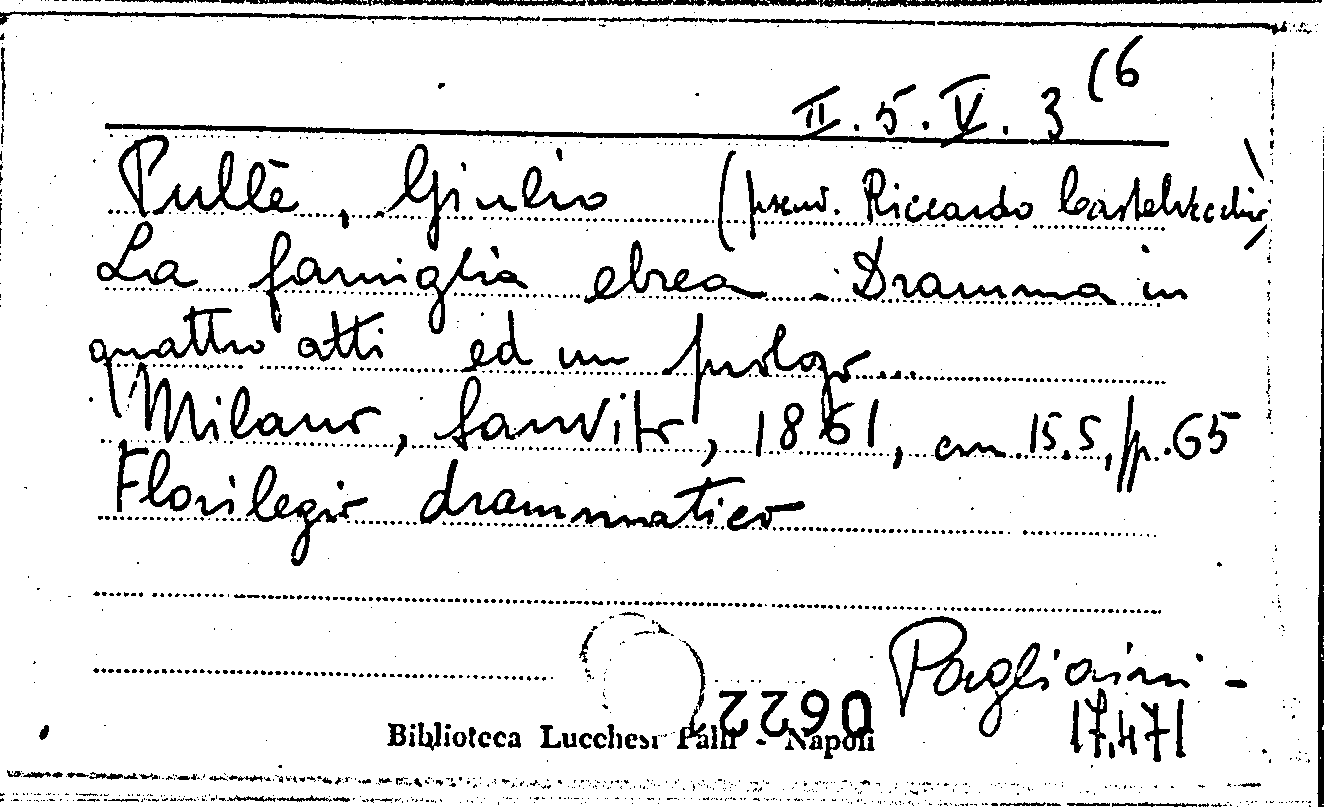 II. 5. V. 3 (6
Pullè, Giulio (pseud. Riccardo Castelvecchio)
La famiglia ebrea. Dramma in
quattro atti ed un prologo...
Milano, Sanvito, 1861, cm. 15.5, pp. 65
Florilegio drammatico
Pagliaini -
17,471
06622
Biblioteca Lucchesi Palli - Napoli